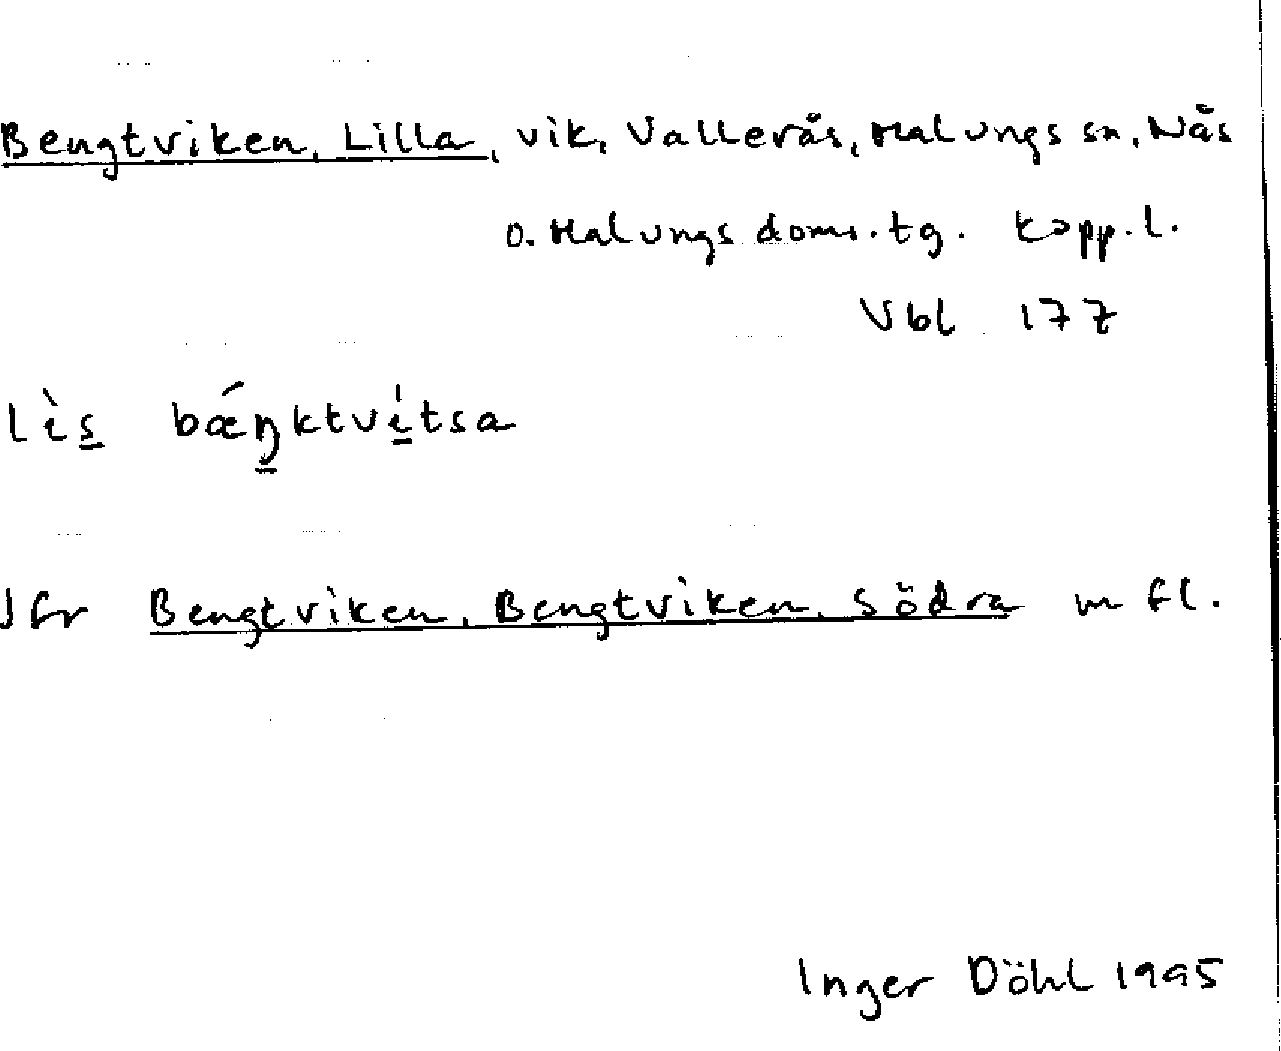 Bengtviken, Lilla, vik, Vallerås, Malungs sn, Nås
o. Malungs doms.tg. Kopp.l.
Vbl 177
lìs bǽŋktvítsa
Jfr Bengtviken, Bengtviken, Södra m fl.
Inger Döhl 1995